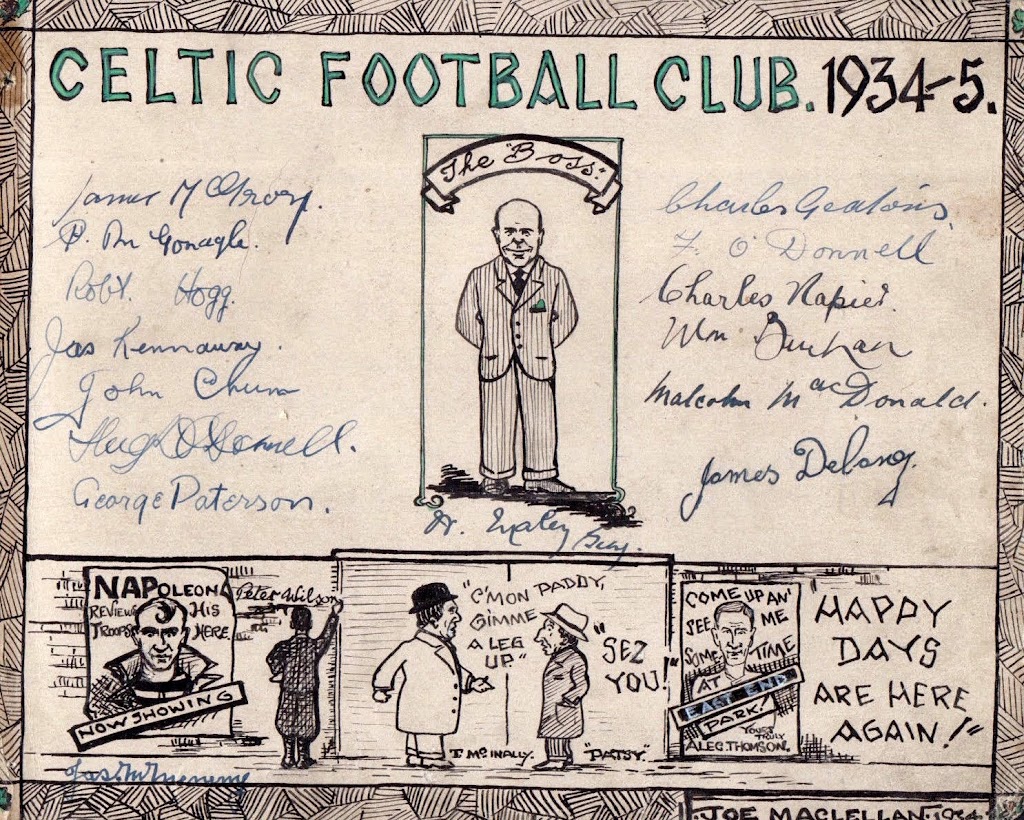 CELTIC FOOTBALL CLUB. 1934-5.
The "Boss".
James McGrory.
P. McGonagle.
Robt. Hogg.
Jas Kennaway.
John Crum
Hugh O'Donnell.
George Paterson.
Charles Geatons
F. O'Donnell
Charles Napier.
Wm Buchan
Malcolm MacDonald.
James Delaney.
W. Maley
NAPOLEON
REVIEWS HIS
TROOPS HERE.
NOW SHOWING
Peter Wilson
"C'MON PADDY,
GIMME
A LEG
UP."
"SEZ
YOU!"
T. McINALLY.
"PATSY".
COME UP AN'
SEE ME
SOME TIME
AT
EAST END
PARK!
YOURS
TRULY
ALEC THOMSON.
HAPPY
DAYS
ARE HERE
AGAIN!"
JOE MACLELLAN. 1934